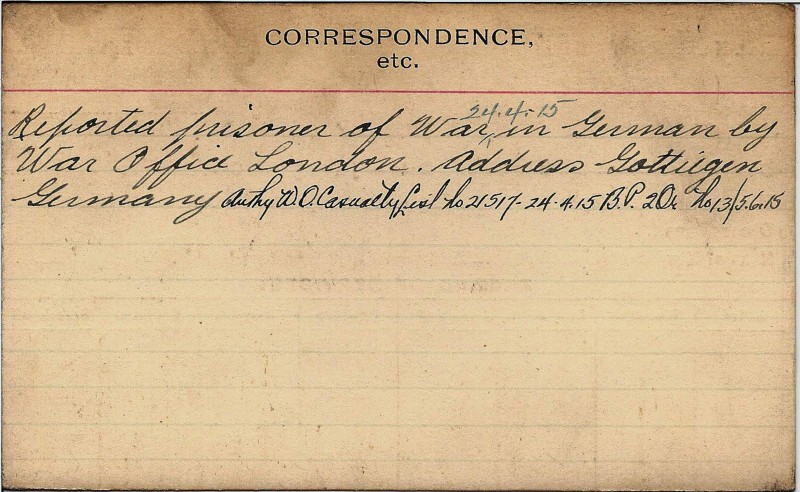 CORRESPONDENCE,
etc.
24.4.15
Reported prisoner of War, in German by
War Office London. Address Gottiegen
Germany Authy W.O. Casualty List No 21517-24-4.15 B.P. 2 Or No 13/5.6.15